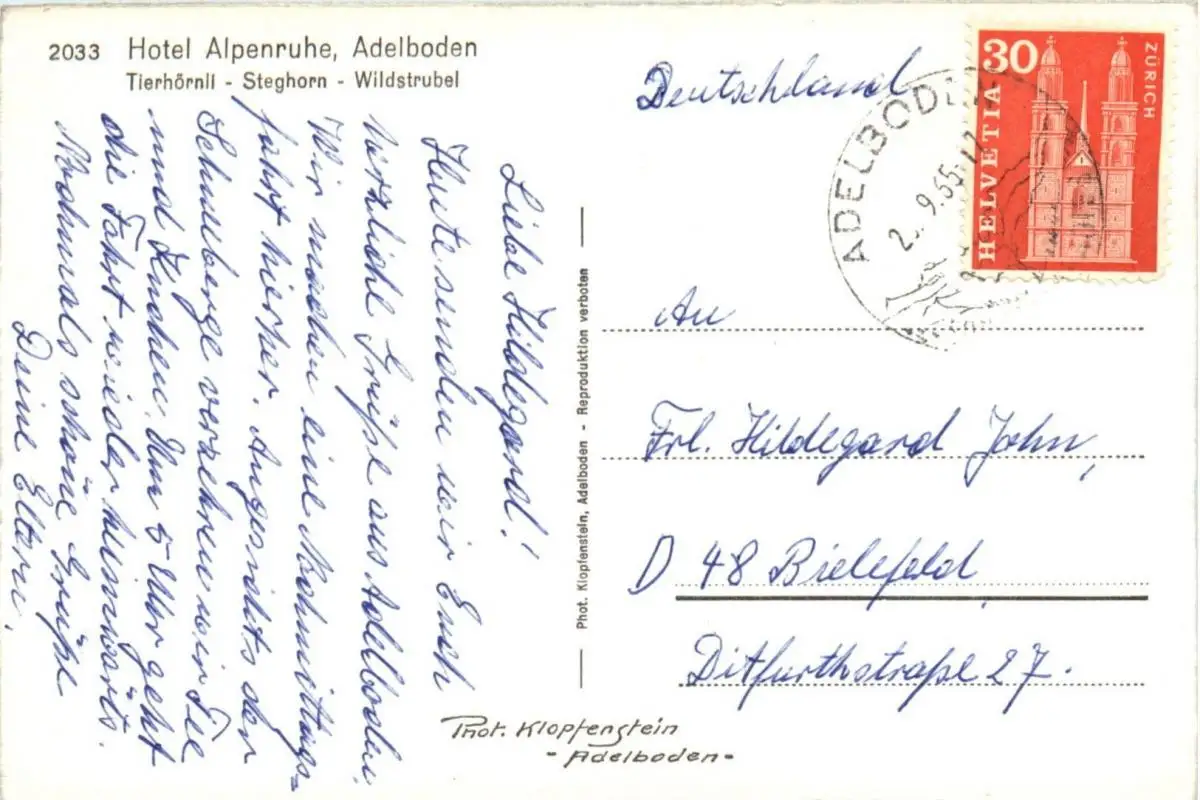 2033 Hotel Alpenruhe, Adelboden
Tierhörnli - Steghorn - Wildstrubel
Liebe Hildegard!
Heute senden wir Euch
herzliche Grüße aus Adelboden.
Wir machen eine Nachmittags-
fahrt hierher. Angesichts der
Schneeberge verzehren wir Tee
und Kuchen. Um 5 Uhr geht
die Fahrt wieder heimwärts.
Nochmals schöne Grüße
Deine Eltern.
Phot. Klopfenstein, Adelboden - Reproduktion verboten
Phot. Klopfenstein
- Adelboden -
Deutschland
ADELBODEN
9.65
30
HELVETIA
ZÜRICH
An
Frl. Hildegard John,
D 48 Bielefeld
Ditfurthstraße 27.